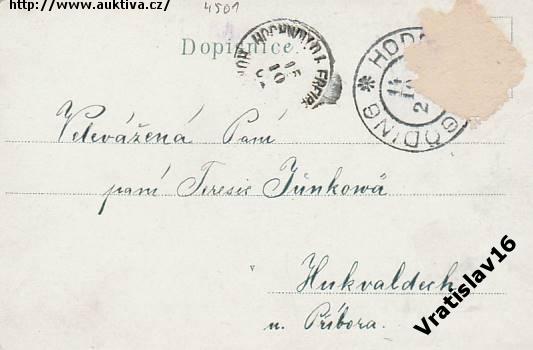 http://www.auktiva.cz/
4501
Dopisnice.
HOCHWALD I. FREIB
15
10
HOD
GÖDING *
14
2
Velevážená Paní
paní Teresie Junková
v
Hukvaldech
u. Příbora.
Vratislav16